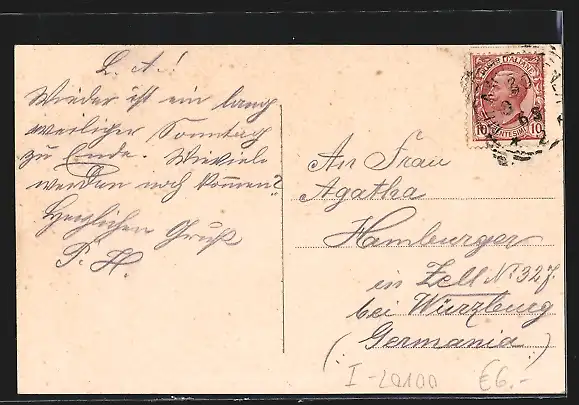 L. A.!
Wieder ist ein lang
weiliger Sonntag
zu Ende. Wieviele
werden noch kommen?
Herzlichen Gruß
P. H.
An Frau
Agatha
Hamburger
in Zell No 327.
bei Würzburg
(Germania)
10 CENTESIMI 10
I-20100 €6.-